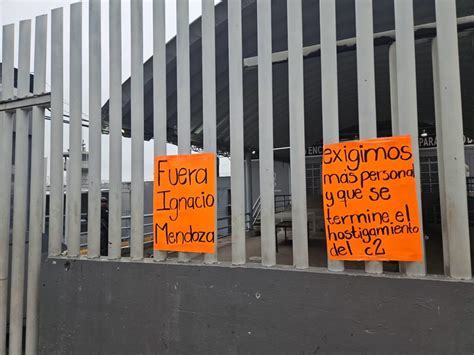 Fuera
Ignacio
Mendoza
exigimos
más personal
y que se
termine, el
hostigamiento
del c2